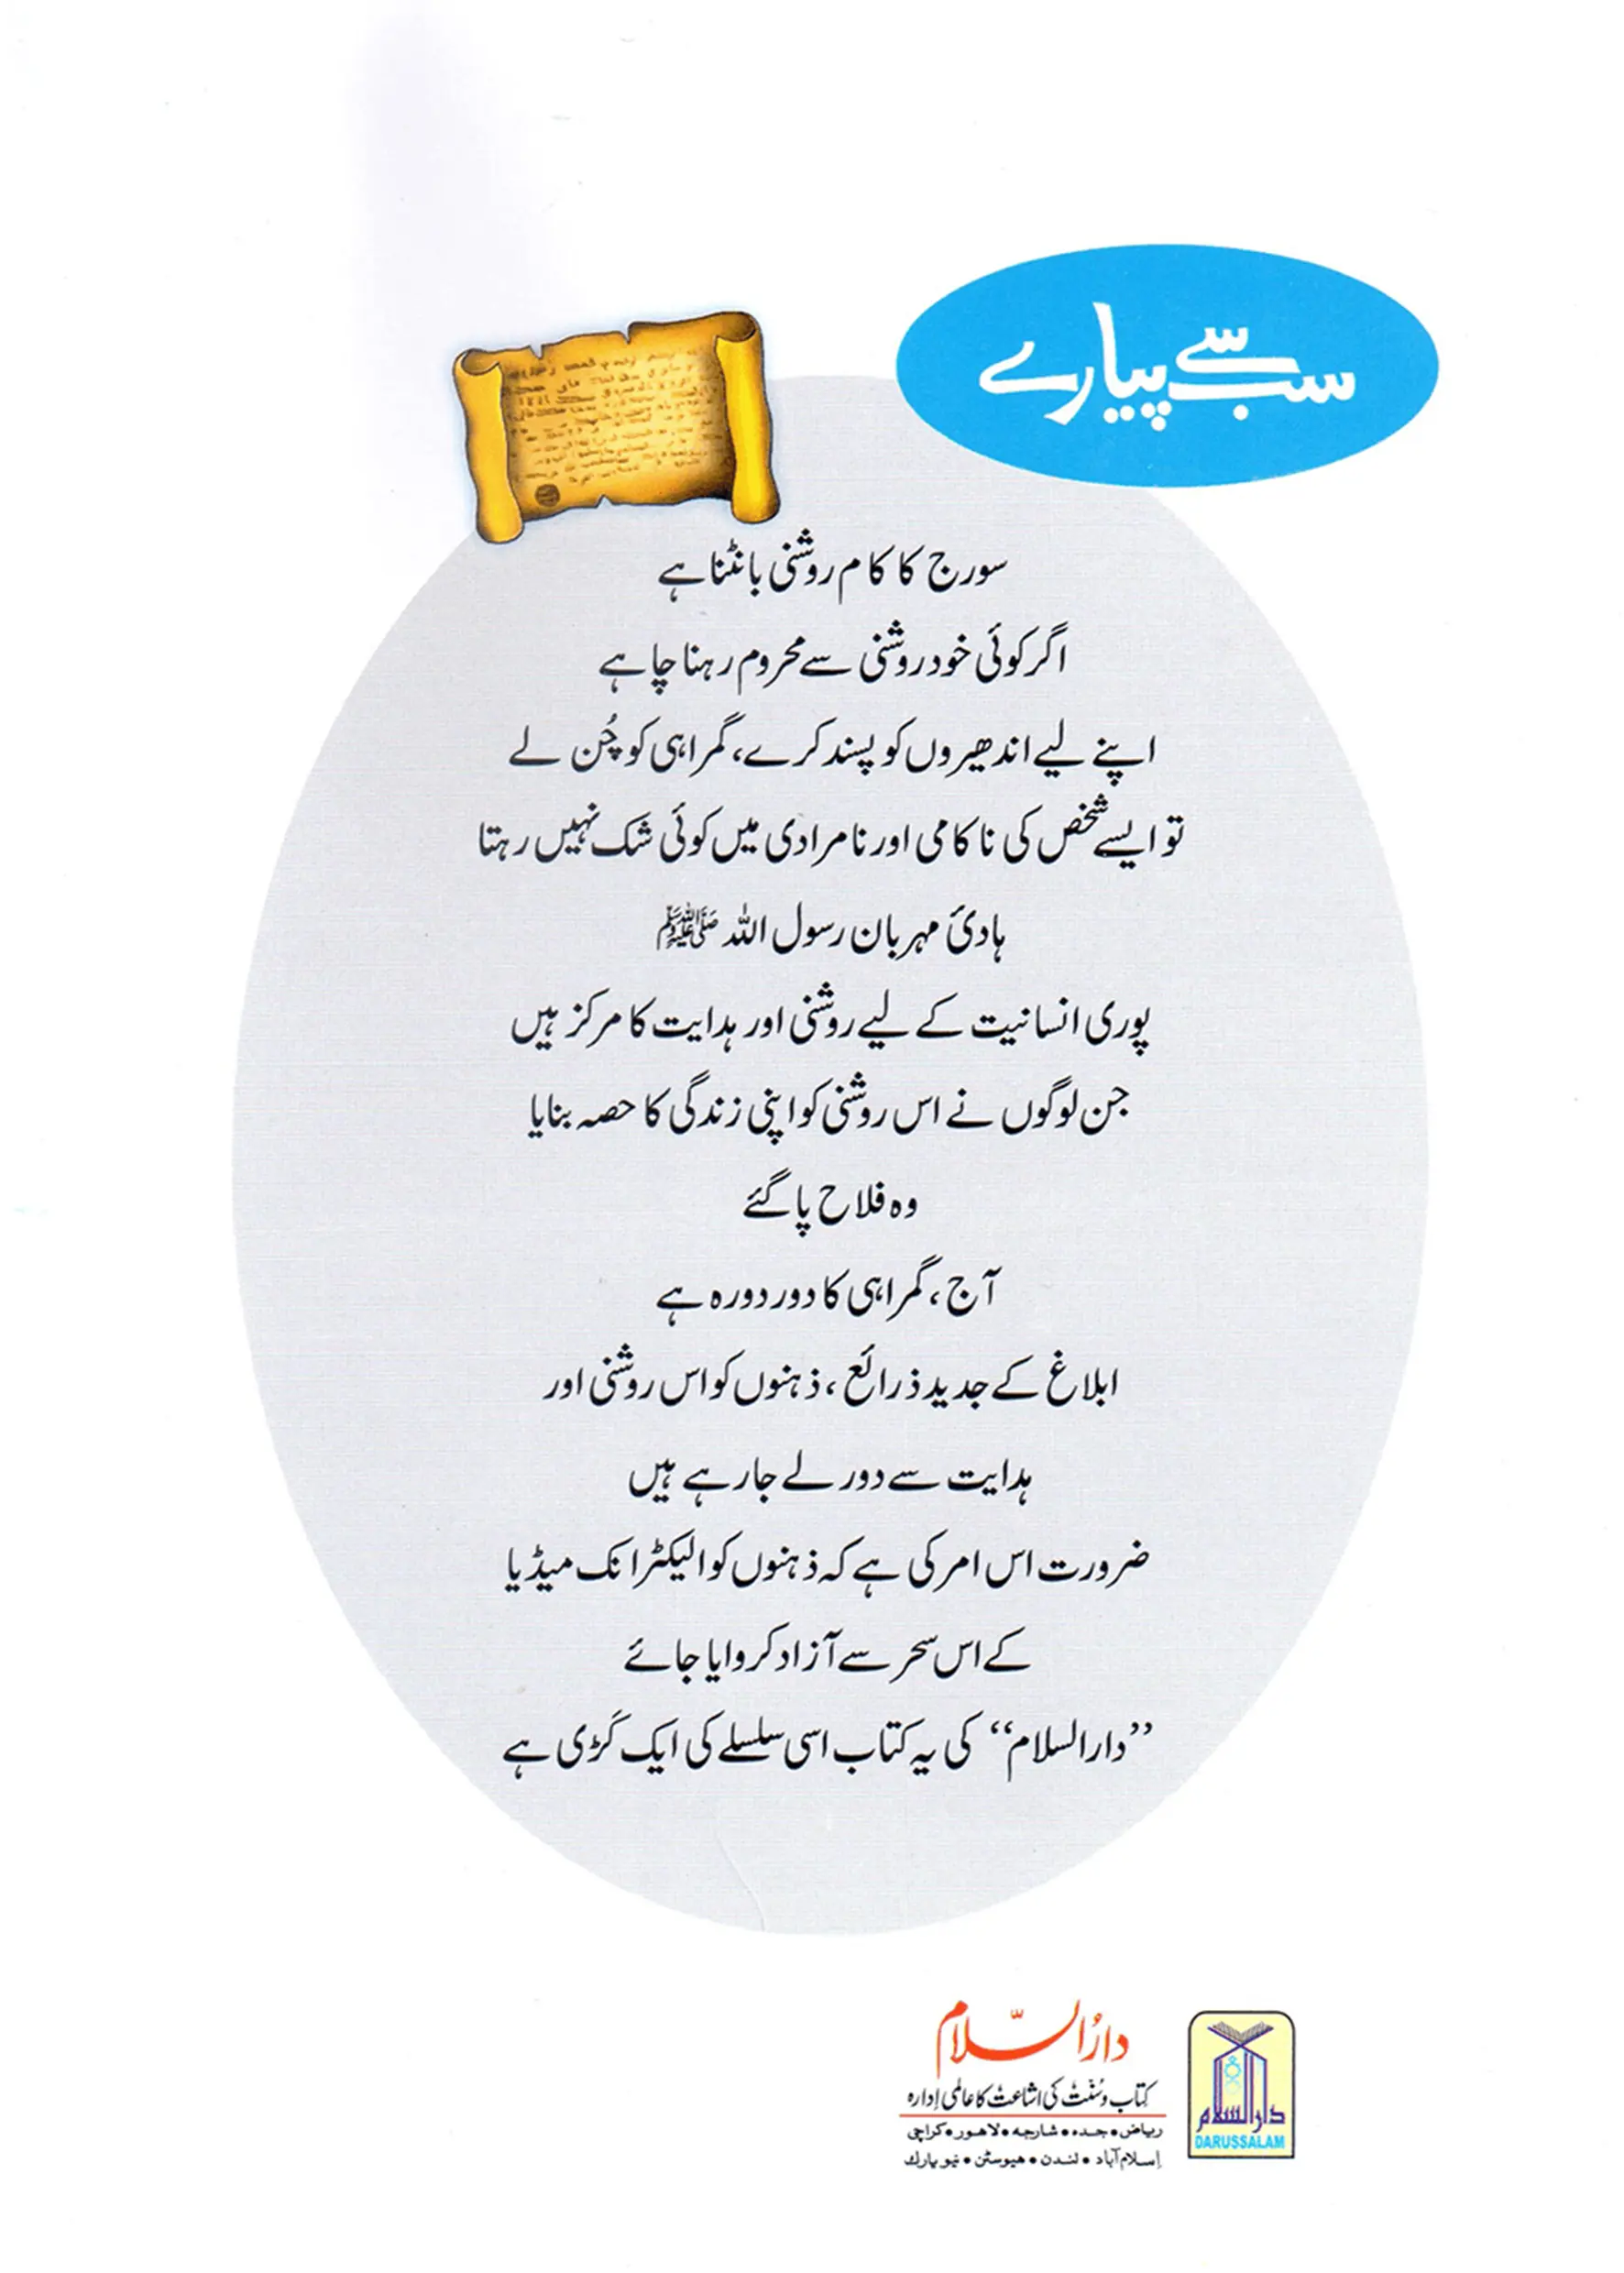 سب سے پیارے
سورج کا کام روشنی بانٹنا ہے
اگر کوئی خود روشنی سے محروم رہنا چاہے
اپنے لیے اندھیروں کو پسند کرے، گمراہی کو چُن لے
تو ایسے شخص کی ناکامی اور نامرادی میں کوئی شک نہیں رہتا
ہادیٔ مہربان رسول اللہ ﷺ
پوری انسانیت کے لیے روشنی اور ہدایت کا مرکز ہیں
جن لوگوں نے اس روشنی کو اپنی زندگی کا حصہ بنایا
وہ فلاح پا گئے
آج، گمراہی کا دور دورہ ہے
ابلاغ کے جدید ذرائع، ذہنوں کو اس روشنی اور
ہدایت سے دور لے جا رہے ہیں
ضرورت اس امر کی ہے کہ ذہنوں کو الیکٹرانک میڈیا
کے اس سحر سے آزاد کروایا جائے
”دارالسلام“ کی یہ کتاب اسی سلسلے کی ایک کَڑی ہے
دارُالسّلام
کتاب و سُنّت کی اشاعت کا عالمی اِدارہ
ریاض • جدہ • شارجہ • لاہور • کراچی
اِسلام آباد • لندن • ہیوسٹن • نیویارک
دارالسلام
DARUSSALAM